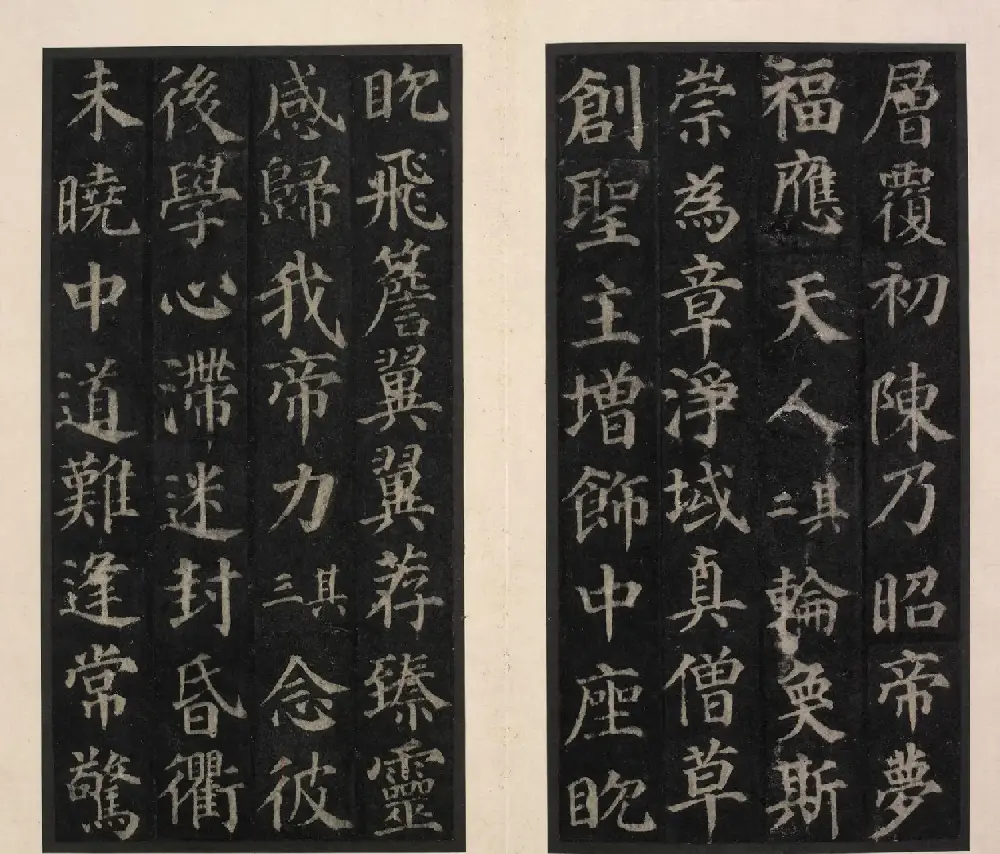 層覆初陳乃昭帝夢
福應天人其二輪奐斯
崇為章淨域真僧草
創聖主增飾中座眈
眈飛簷翼翼荐臻靈
感歸我帝力其三念彼
後學心滯迷封昏衢
未曉中道難逢常驚